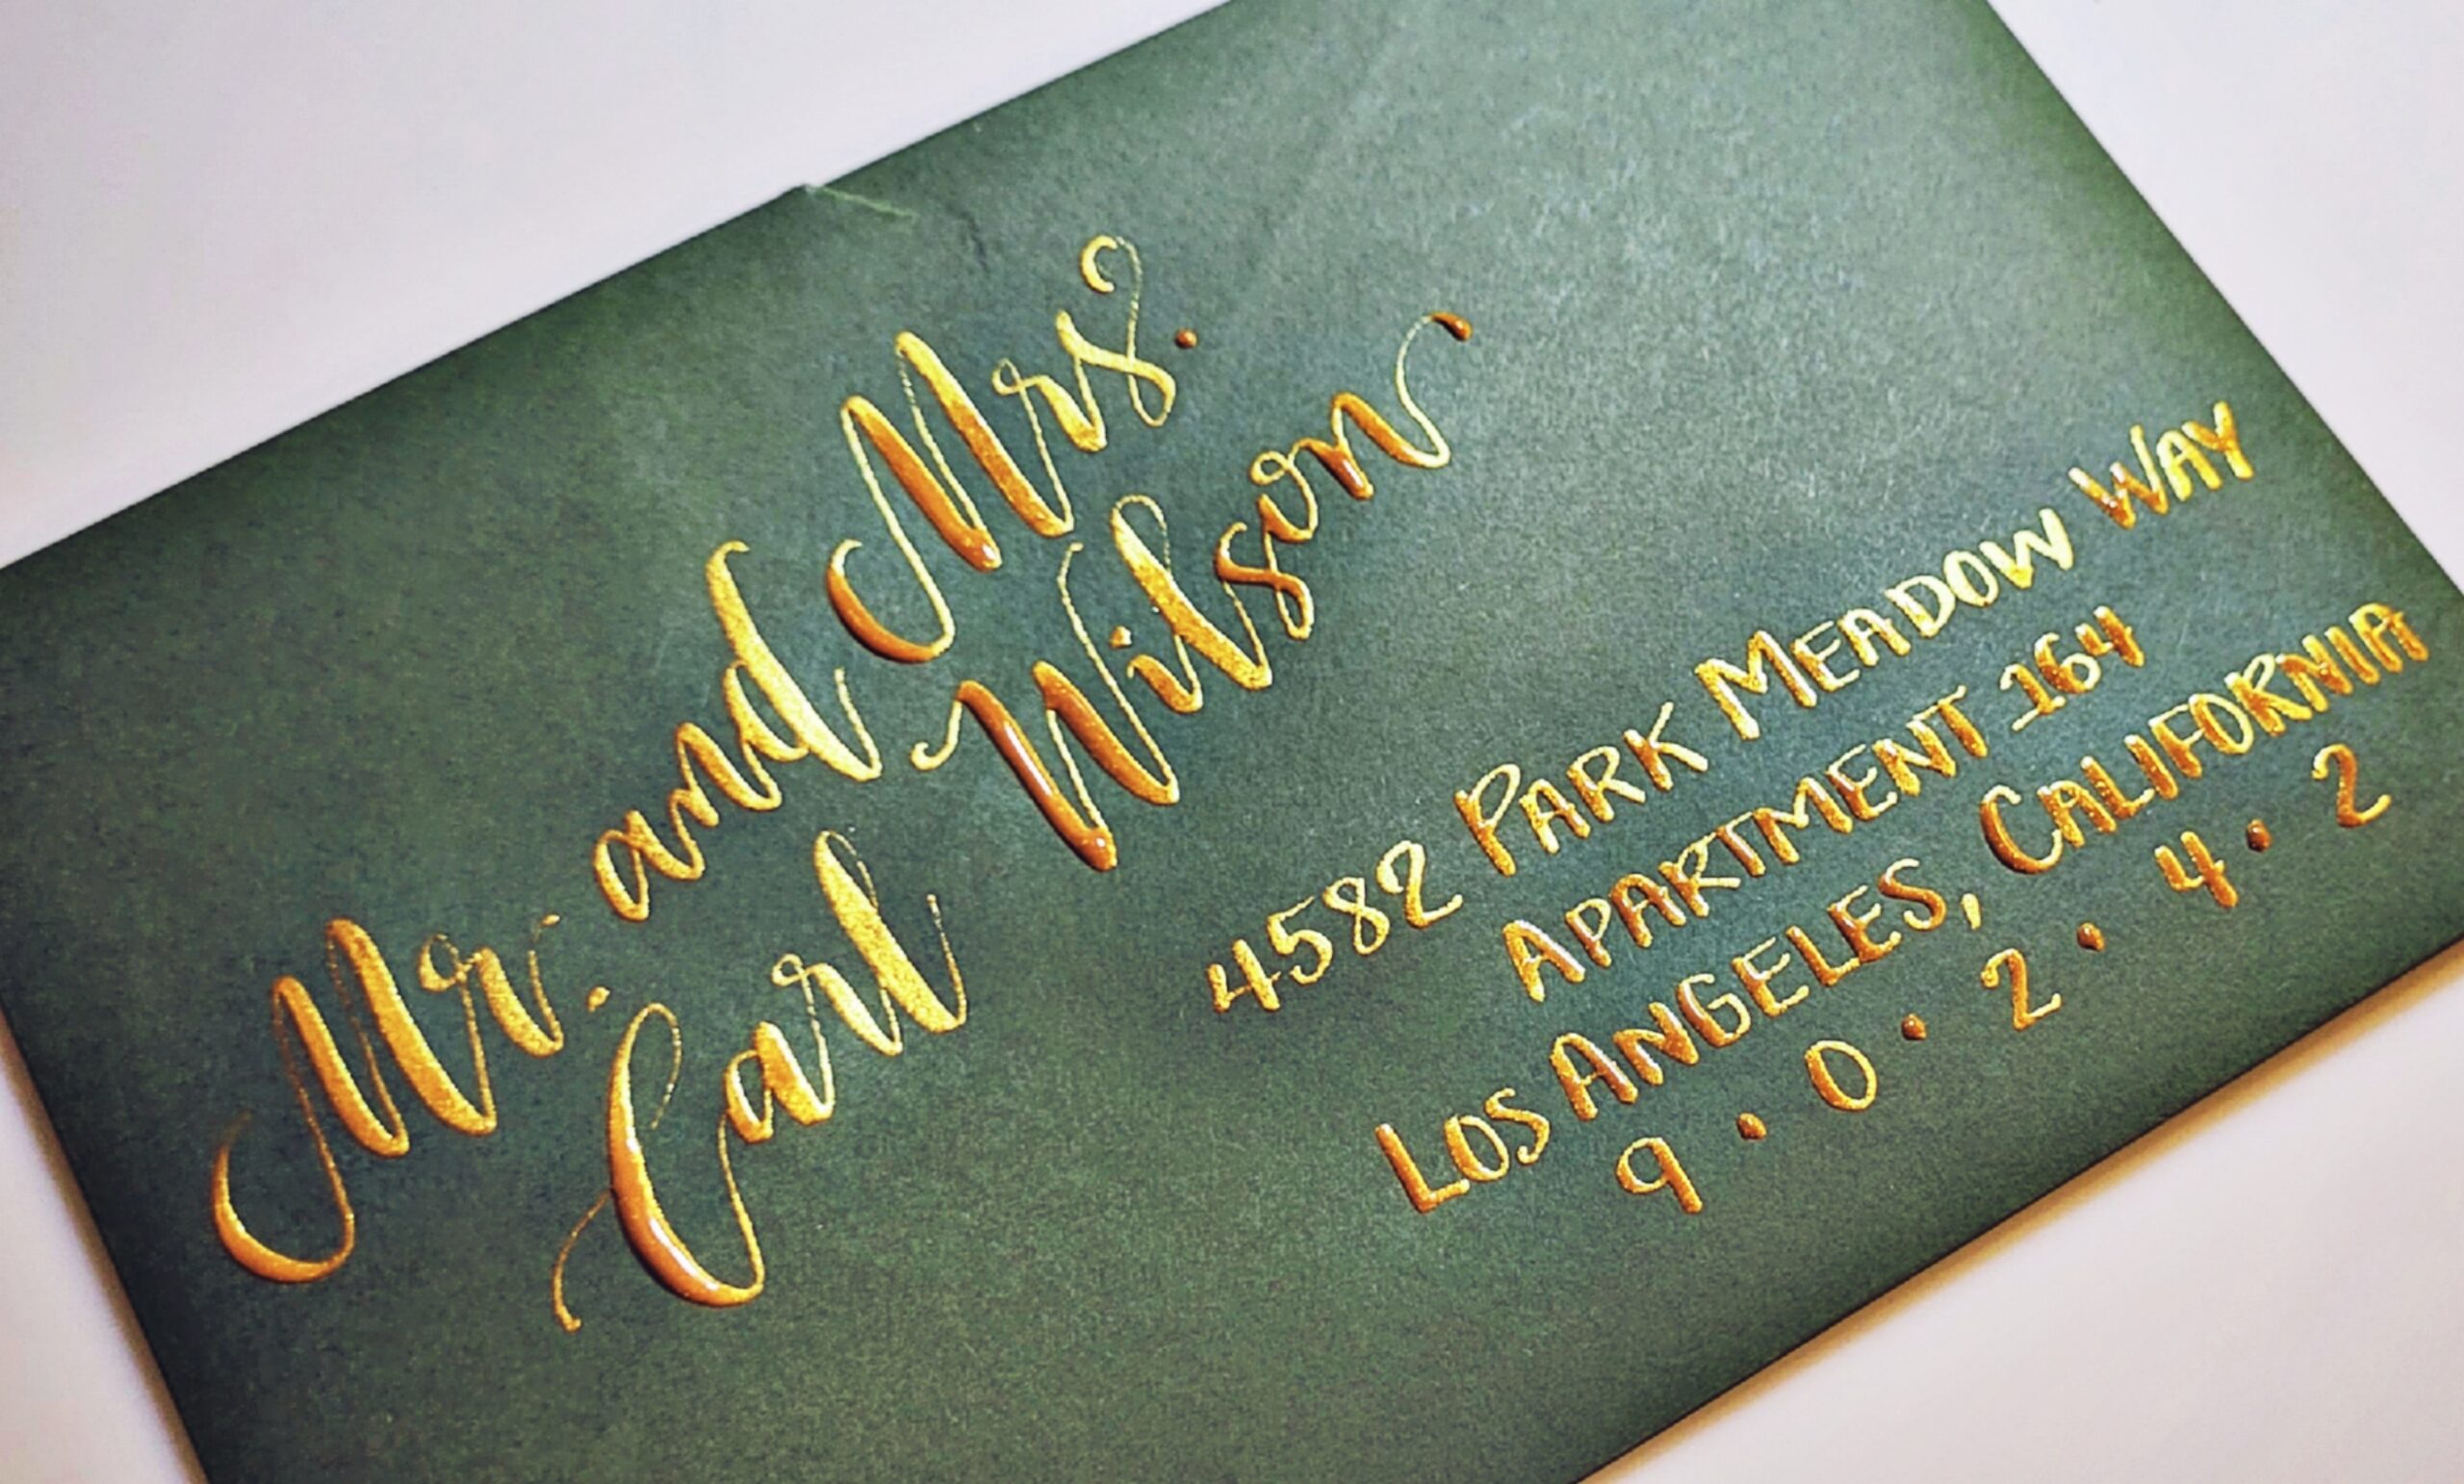 Mr. and Mrs.
Earl Wilson
4582 Park Meadow Way
Apartment 164
Los Angeles, California
9 · 0 · 2 · 4 · 2